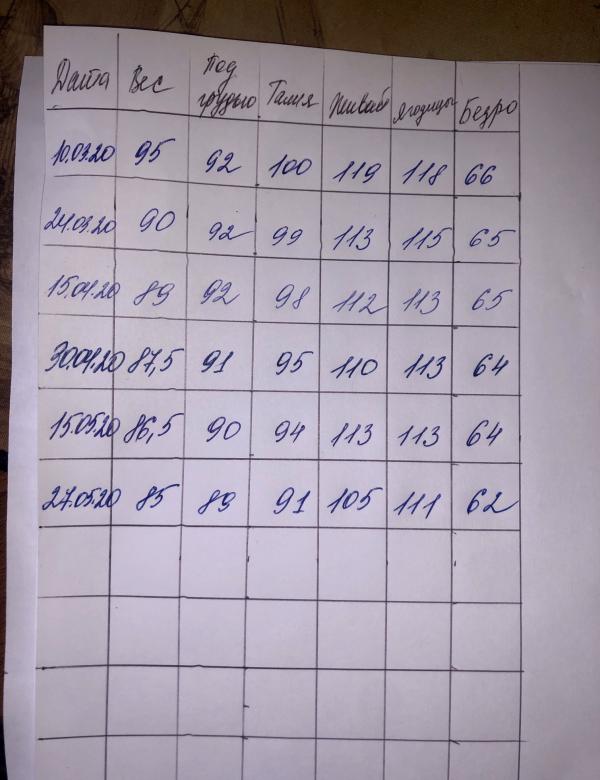 Дата Вес Под грудью Талия Живот Ягодицы Бедро
10.03.20 95 92 100 119 118 66
24.03.20 90 92 99 113 115 65
15.04.20 89 92 98 112 113 65
30.04.20 87,5 91 95 110 113 64
15.05.20 86,5 90 94 113 113 64
27.05.20 85 89 91 105 111 62